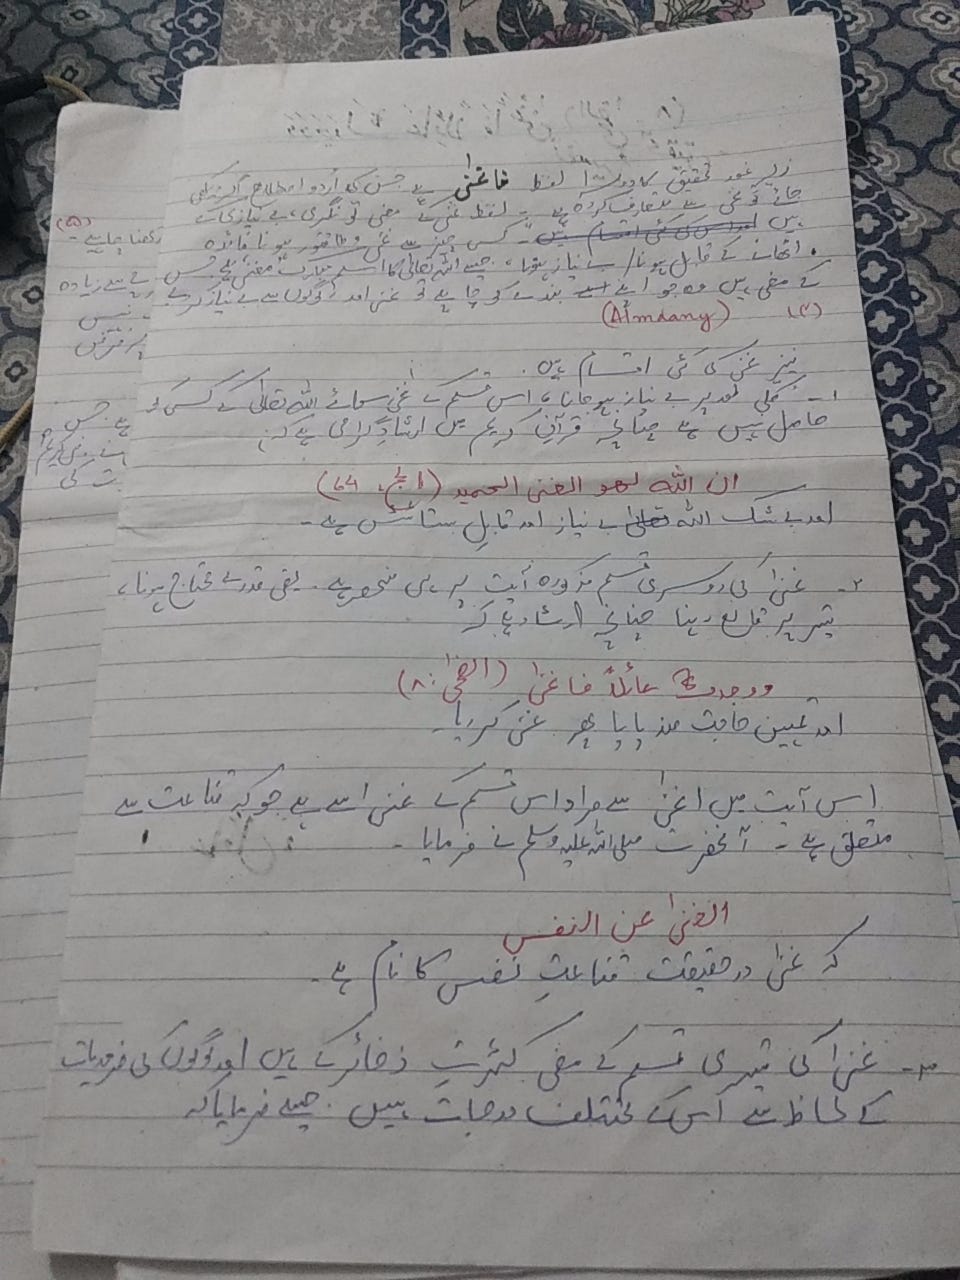 زیر غور تحقیق کا دوسرا لفظ فاغنٰی ہے جس کو اردو اصطلاح
جائے تو غنی سے متعارف کردہ ہے۔ لفظ غنی کے معنی تونگری، بے نیازی کے
ہیں۔ کسی چیز سے غنی و طاقتور ہونا فائدہ
اٹھانے کے قابل ہونا/ بے نیاز ہونا، جیسے اللہ تعالیٰ کا اسم مبارک "مغنی" ہے جس
کے معنی ہیں وہ جو اپنے بندے کو چاہے تو غنی اور لوگوں سے بے نیاز کردے
(۴) (Almaany)
نیز غنیٰ کی کئی اقسام ہیں۔
۱۔ کلی طور پر بے نیاز ہو جانا، اس قسم کے غنیٰ سوائے اللہ تعالیٰ کے کسی کو
حاصل نہیں ہے چنانچہ قرآن کریم میں ارشاد گرامی ہے کہ:
ان اللہ لھو الغنی الحمید (الحج، 64)
اور بے شک اللہ تعالیٰ بے نیاز اور قابل ستائش ہے۔
۲۔ غنیٰ کی دوسری قسم مذکورہ آیت پر ہی منحصر ہے۔ یعنی قدرے محتاج ہونا،
تیسر پر قانع رہنا چنانچہ ارشاد ہے کہ
ووجدک عائلاً فاغنیٰ (الضحیٰ: ۸)
اور تمہیں حاجت مند پایا پھر غنی کر دیا۔
اس آیت میں اغنیٰ سے مراد اس قسم کے غنیٰ سے ہے جو کہ قناعت سے
متعلق ہے۔ آنحضرت صلی اللہ علیہ وسلم نے فرمایا۔
الغنیٰ عن النفس
کہ غنیٰ درحقیقت قناعتِ نفس کا نام ہے۔
۳۔ غنیٰ کی تیسری قسم کے معنی کثرتِ ذخائر کے ہیں اور لوگوں کی ضروریات
کے لحاظ سے اس کے مختلف درجات ہیں۔ جیسے فرمایا کہ
(۵)
رکھنا چاہیے۔
سے زیادہ